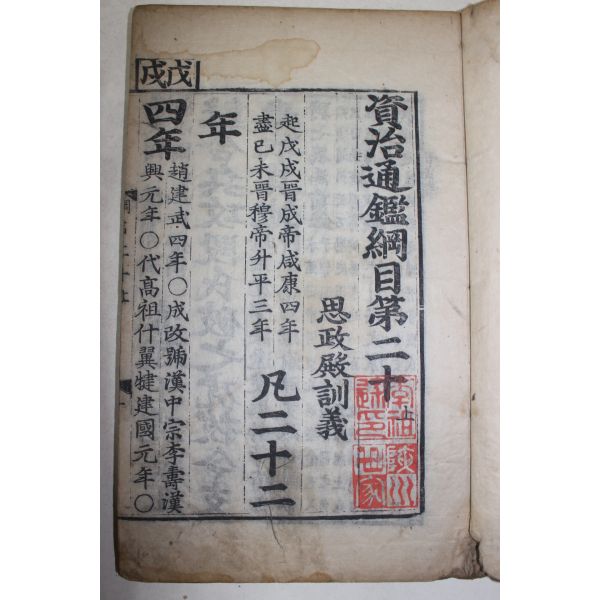 資治通鑑綱目第二十
思政殿訓義
起戊戌晉成帝咸康四年
盡己未晉穆帝升平三年
凡二十二
年
戊戌
四年
趙建武四年〇成改號漢中宗李壽漢
興元年〇代高祖什翼犍建國元年〇